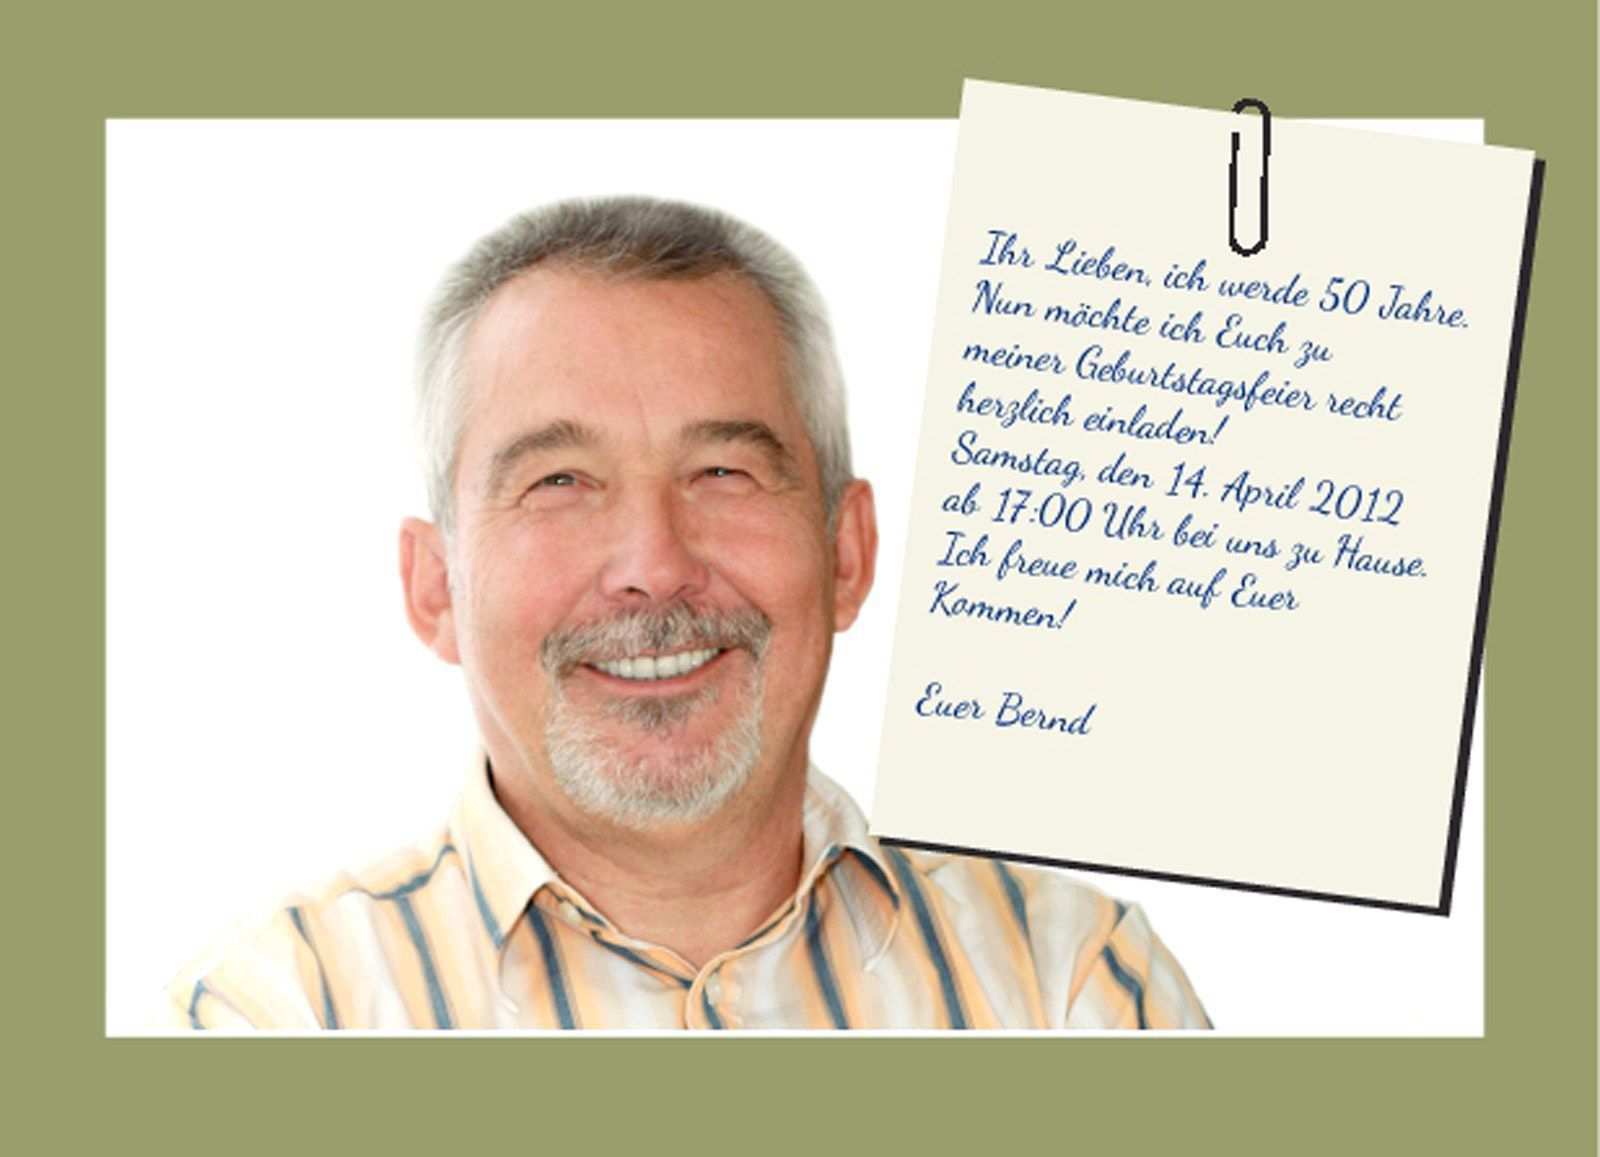 Ihr Lieben, ich werde 50 Jahre.
Nun möchte ich Euch zu
meiner Geburtstagsfeier recht
herzlich einladen!
Samstag, den 14. April 2012
ab 17:00 Uhr bei uns zu Hause.
Ich freue mich auf Euer
Kommen!
Euer Bernd